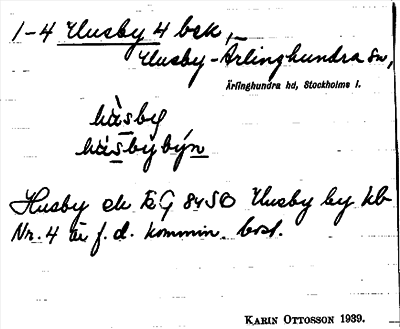 1-4 Husby 4 bsk,
Husby-Ärlinghundra sn,
Ärlinghundra hd, Stockholms l.
hùsby
hùsbybýn
Husby ek EG 84 SO Husby by hb
Nr. 4 är f. d. kommin. bost.
KARIN OTTOSSON 1939.